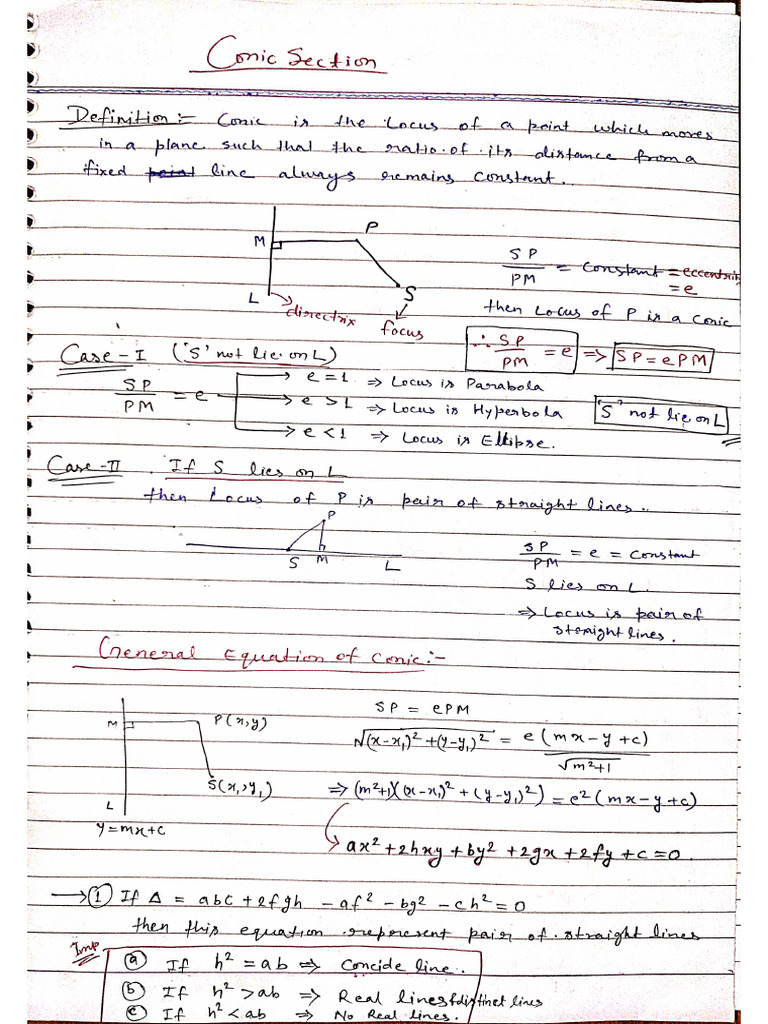 Conic Section
Definition:- Conic is the Locus of a point which moves
in a plane such that the ratio of its distance from a
fixed point line always remains constant.
M
P
L
S
directrix
focus
SP/PM = Constant = eccentricity
= e
then Locus of P is a conic
∴ SP/PM = e ⇒ SP = ePM
Case-I ('S' not lie on L)
SP/PM = e
e = 1 ⇒ Locus is Parabola
e > 1 ⇒ Locus is Hyperbola
'S' not lie on L
e < 1 ⇒ Locus is Ellipse.
Case-II . If S lies on L
then Locus of P is pair of straight lines.
P
S M L
SP/PM = e = constant
S lies on L.
⇒ Locus is pair of
straight lines.
General Equation of Conic:-
M
P(x,y)
S(x₁,y₁)
L
y=mx+c
SP = ePM
√(x-x₁)²+(y-y₁)² = e(mx-y+c)/√m²+1
⇒ (m²+1)((x-x₁)²+(y-y₁)²) = e²(mx-y+c)
ax²+2hxy+by²+2gx+2fy+c=0.
→ ① If Δ = abc+2fgh -af²-bg²-ch²=0
then this equation represent pair of straight lines
Imp
ⓐ If h²=ab ⇒ Concide line.
ⓑ If h²>ab ⇒ Real lines & distinet lines
ⓒ If h²<ab ⇒ No Real lines.